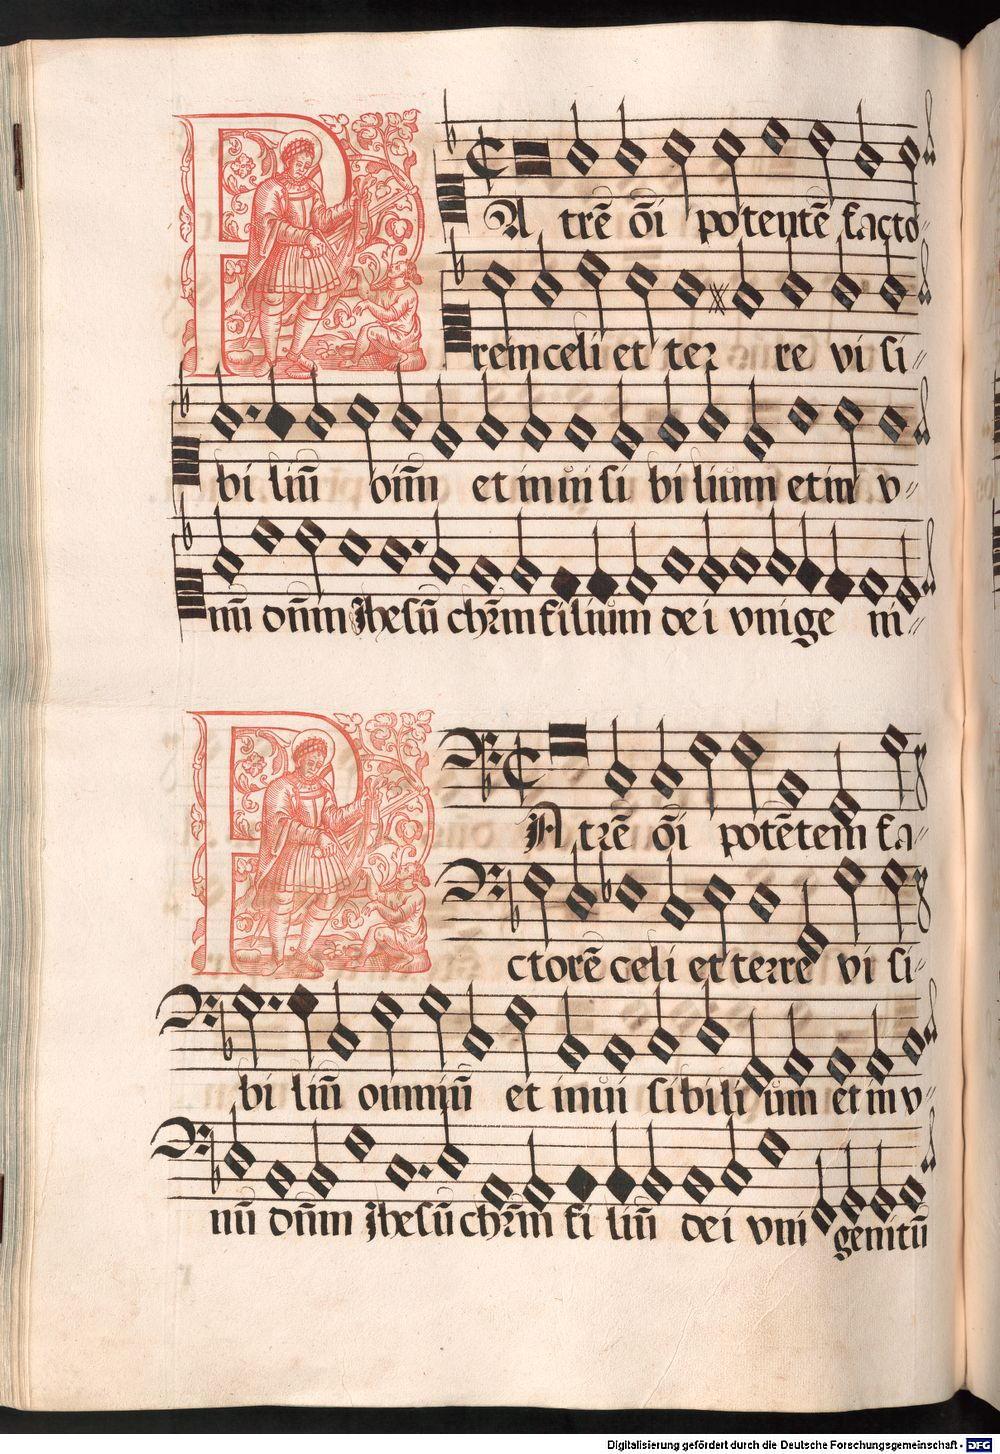 PA trē oı̄ potentē facto⸗
rem celi et ter re vi si⸗
bi liū oı̄m et in ui si bi lium et in v⸗
nū dn̄m Jhesū chr̄m filium dei vnige ni⸗
PA trē oı̄ potētem fa⸗
ctorē celi et terre vi si⸗
bi liū omniū et inui sibili um et in v⸗
nū dn̄m Jhesū chr̄m fi liū dei vni genitū
Digitalisierung gefördert durch die Deutsche Forschungsgemeinschaft - DFG